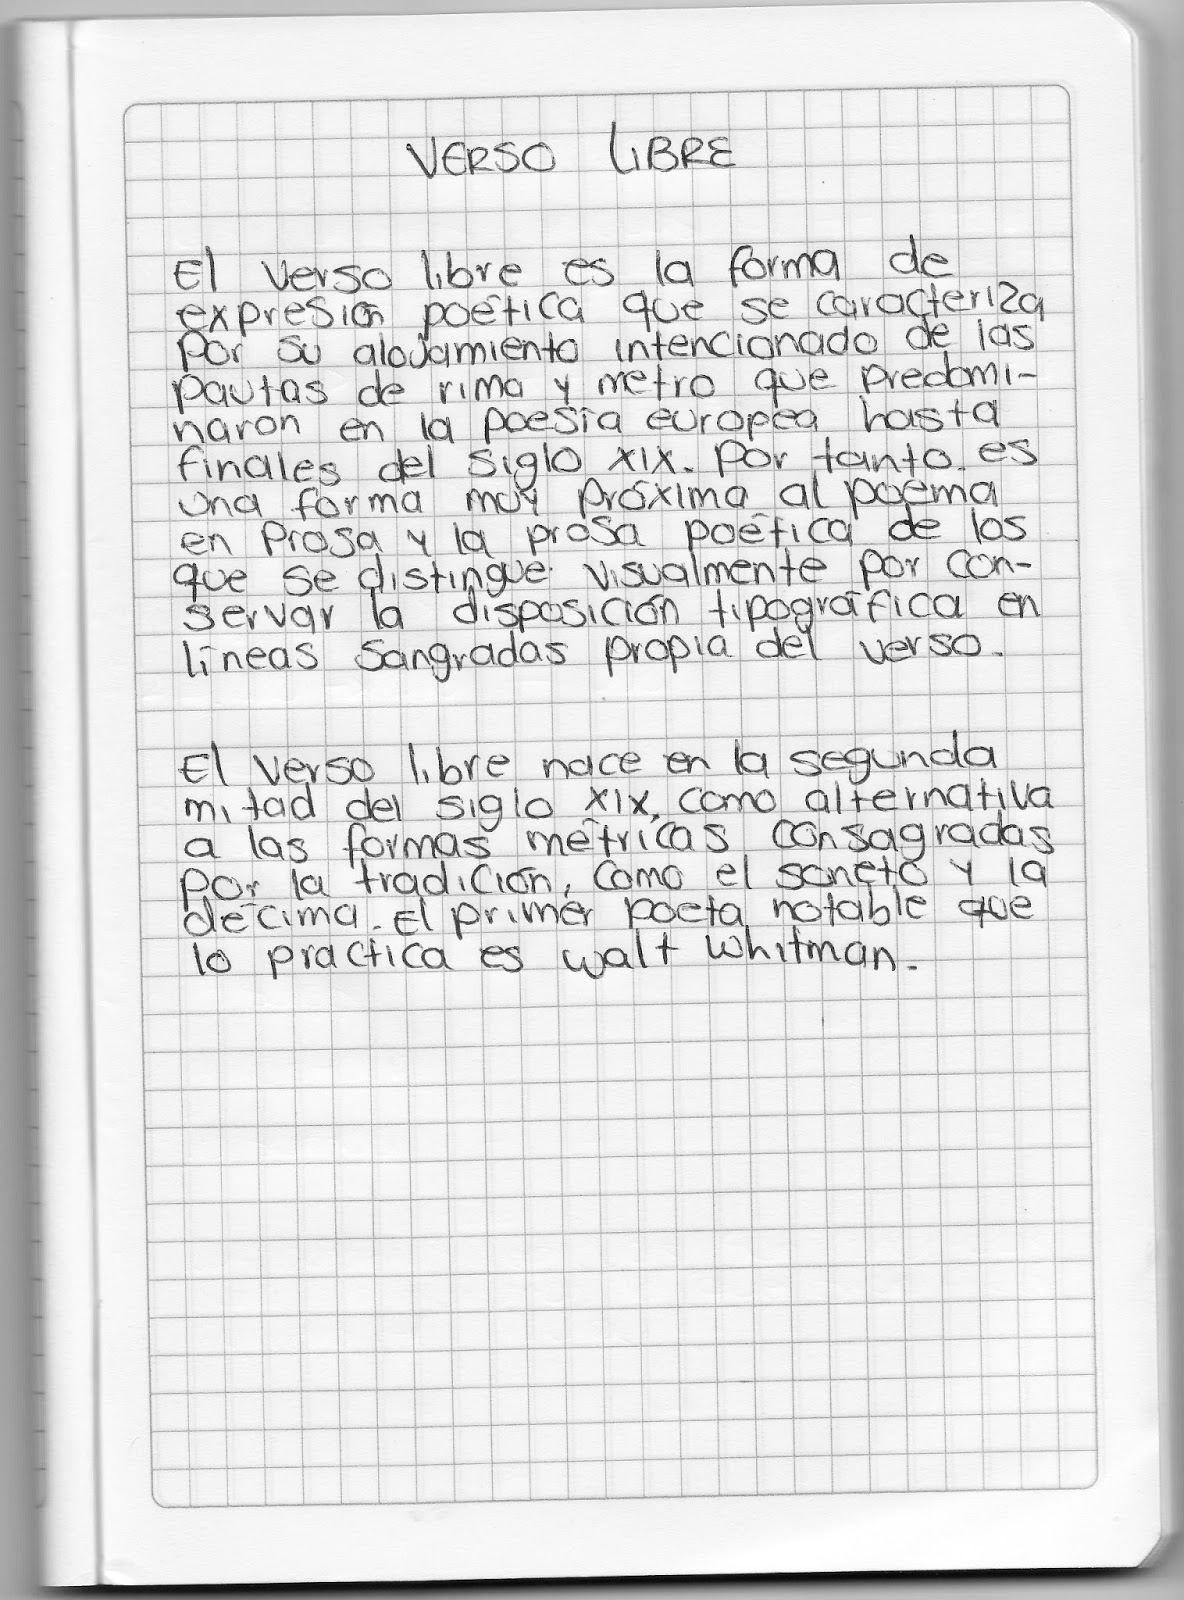 VERSO LIBRE
El verso libre es la forma de
expresión poética que se caracteriza
por su alojamiento intencionado de las
pautas de rima y metro que predomi-
naron en la poesía europea hasta
finales del siglo XIX. Por tanto, es
una forma muy próxima al poema
en prosa y la prosa poética de los
que se distingue visualmente por con-
servar la disposición tipográfica en
líneas sangradas propia del verso.
El verso libre nace en la segunda
mitad del siglo XIX, como alternativa
a las formas métricas consagradas
por la tradición, como el soneto y la
décima. El primer poeta notable que
lo practica es Walt Whitman.